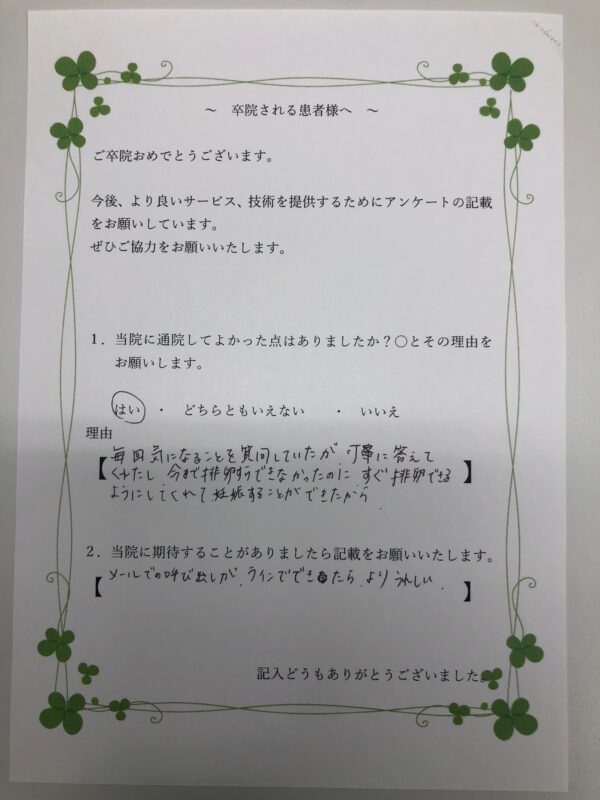 ～　卒院される患者様へ　～
ご卒院おめでとうございます。
今後、より良いサービス、技術を提供するためにアンケートの記載
をお願いしています。
ぜひご協力をお願いいたします。
１．当院に通院してよかった点はありましたか？〇とその理由を
お願いします。
はい　・　どちらともいえない　　・　いいえ
理由
【毎回気になることを質問していたが、丁寧に答えて
くれたし、今まで排卵すらできなかったのに、すぐ排卵できる
ようにしてくれて妊娠することができたから。】
２．当院に期待することがありましたら記載をお願いいたします。
【メールでの呼び出しが、ラインでできたら、よりうれしい。】
記入どうもありがとうございました。